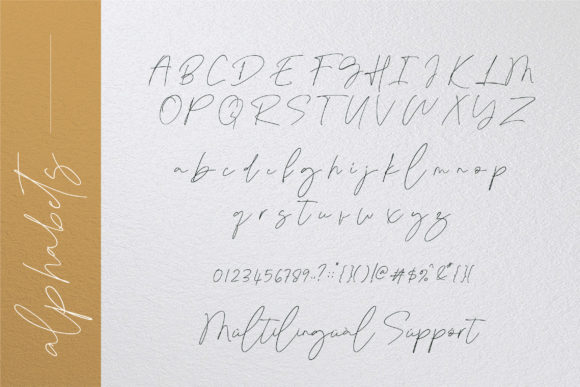 alphabets
A B C D E F G H I J K L M
O P Q R S T U V W X Y Z
a b c d e f g h i j k l m n o p
q r s t u v w x y z
0123456789..?::*{}()/@#$%^&*{}(
Multilingual Support